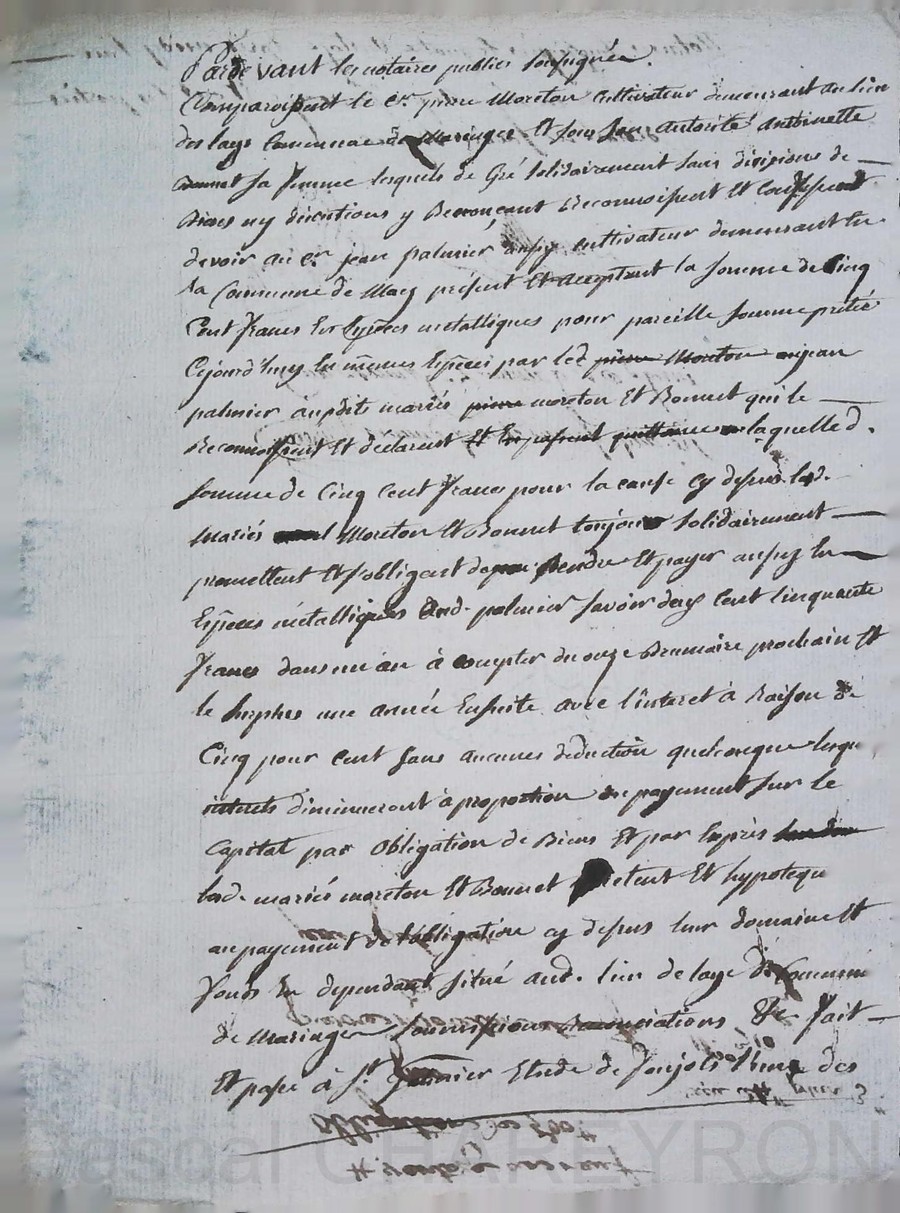 Pardevant les notaires publics soussignés.
Comparoissent le c.en pierre Moreton Cultivateur demeurant au lieu
des lays Commune de Maringes Et sous son autorité antoinette
Bonnet sa femme lesquels de Gré solidairement sans divisions de
Biens ny discutions y Renonçant Reconnoissent Et Confessent
devoir au c.en jean palmier cultivateur demeurant en
la Commune de présent Et acceptant la somme de Cinq
Cent francs En Espèces métalliques pour pareille somme prêtée
Cejourd'huy En mêmes Espèces par led. pierre Moreton jean
palmier auxdits mariés pierre moreton Et Bonnet qui le
Reconnoissent Et déclarent Et En passent quittance laquelle d.
somme de Cinq Cent francs pour la cause cy dessus lesd.
Mariés Moreton Et Bonnet toujours solidairement
promettent Et s'obligent de Rendre Et payer aussy En
Espèces métalliques aud. palmier savoir deux Cent Cinquante
francs dans un an à compter du onze Brumaire prochain Et
le surplus une année Ensuite avec l'interet à Raison de
Cinq pour cent sans aucunes déduction quelconque
interets diminueront à proportion du payement sur le
Capital par obligation de Biens Et par Exprès
lesd. mariés moreton Et Bonnet Et hypotequ
au payement de l'obligation cy dessus leur domaine Et
fonds En dependant situé aud. lieu de laye Commune
de Maringes soumissions Renonciations &c fait
Et passé à S.t Etude de l'une des
Pascal CHAREYRON